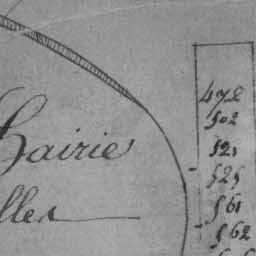 Prairie
lles
472
502
521
525
561
562